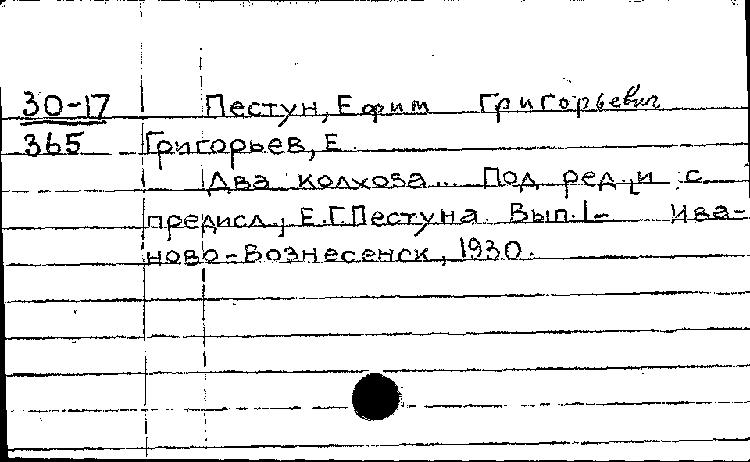 30-17 Пестун, Ефим Григорьевич
365 Григорьев, Е.
Два колхоза... Под ред. [и с
предисл.] Е.Г.Пестуна. Вып.1- Ива-
ново-Вознесенск, 1930.